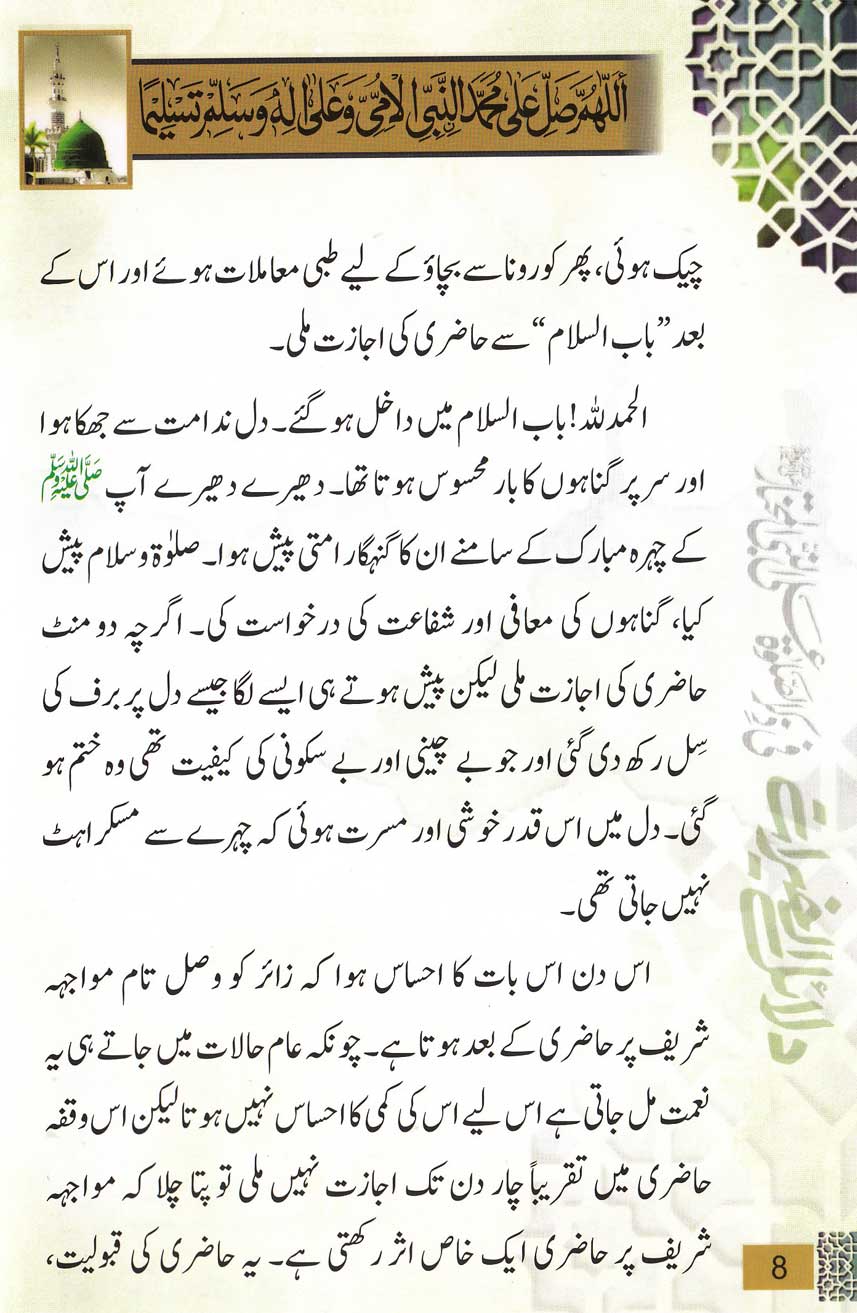 أَللّٰهُمَّ صَلِّ عَلٰى مُحَمَّدِ النَّبِيِّ الْاُمِّيِّ وَعَلٰى اٰلِهٖ وَسَلِّمْ تَسْلِيْمًا
چیک ہوئی، پھر کورونا سے بچاؤ کے لیے طبی معاملات ہوئے اور اس کے
بعد ”باب السلام“ سے حاضری کی اجازت ملی۔
الحمد للہ! باب السلام میں داخل ہو گئے۔ دل ندامت سے جھکا ہوا
اور سر پر گناہوں کا بار محسوس ہوتا تھا۔ دھیرے دھیرے آپ ﷺ
کے چہرہ مبارک کے سامنے ان کا گنہگار امتی پیش ہوا۔ صلوٰۃ و سلام پیش
کیا، گناہوں کی معافی اور شفاعت کی درخواست کی۔ اگرچہ دو منٹ
حاضری کی اجازت ملی لیکن پیش ہوتے ہی ایسے لگا جیسے دل پر برف کی
سِل رکھ دی گئی اور جو بے چینی اور بے سکونی کی کیفیت تھی وہ ختم ہو
گئی۔ دل میں اس قدر خوشی اور مسرت ہوئی کہ چہرے سے مسکراہٹ
نہیں جاتی تھی۔
اس دن اس بات کا احساس ہوا کہ زائر کو وصل تام مواجہہ
شریف پر حاضری کے بعد ہوتا ہے۔ چونکہ عام حالات میں جاتے ہی یہ
نعمت مل جاتی ہے اس لیے اس کی کمی کا احساس نہیں ہوتا لیکن اس وقفہ
حاضری میں تقریباً چار دن تک اجازت نہیں ملی تو پتا چلا کہ مواجہہ
شریف پر حاضری ایک خاص اثر رکھتی ہے۔ یہ حاضری کی قبولیت،
دلائل الخیرات
8